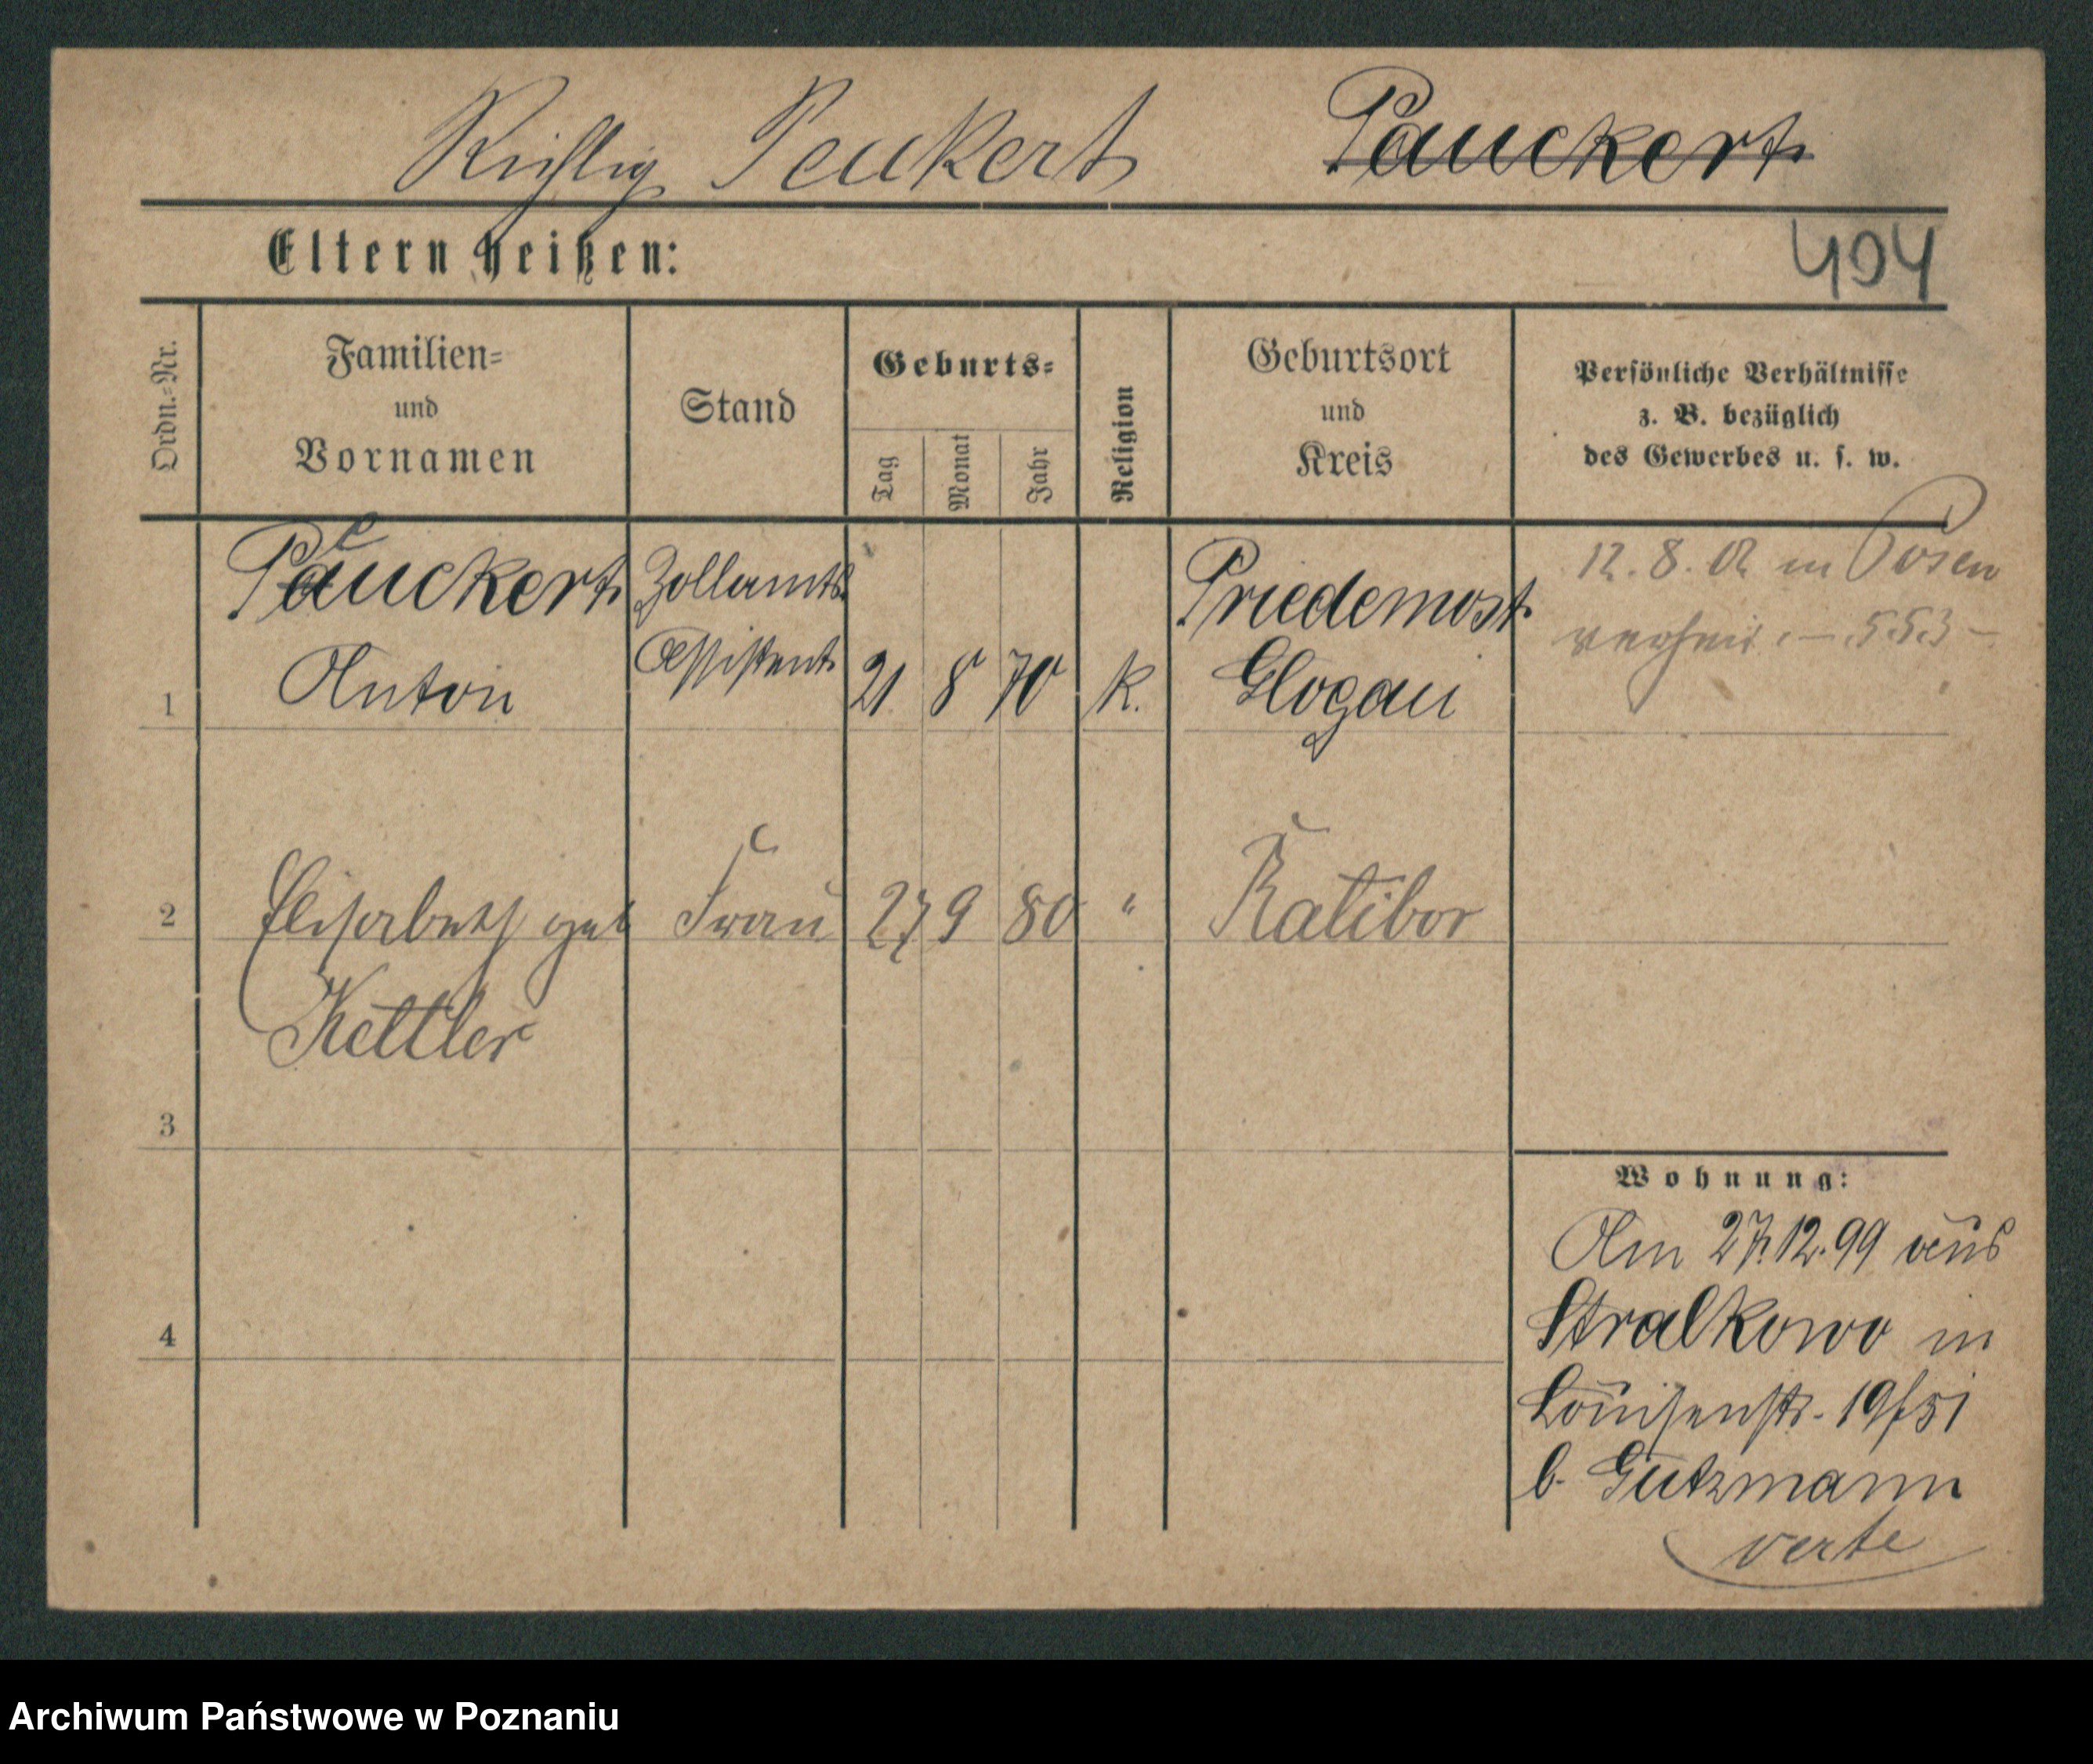 Richtig Peukert Pauckert
Eltern heißen:
404
Ordn.=Nr.
Familien=
und
Vornamen
Stand
Geburts=
Tag
Monat
Jahr
Religion
Geburtsort
und
Kreis
Persönliche Verhältnisse
z. B. bezüglich
des Gewerbes u. s. w.
1
Pauckert
Anton
Zollamts
Assistent
21 8 70 k.
Priedemost
Glogau
12. 8. 02 in Posen
verheir. – 553 –
2
Elisabeth geb
Kettler
Frau 27 9 80 "
Ratibor
3
4
Wohnung:
Am 27.12.99 aus
Stralkowo in
Louisenstr. 19/51
b. Gutzmann
verte
Archiwum Państwowe w Poznaniu